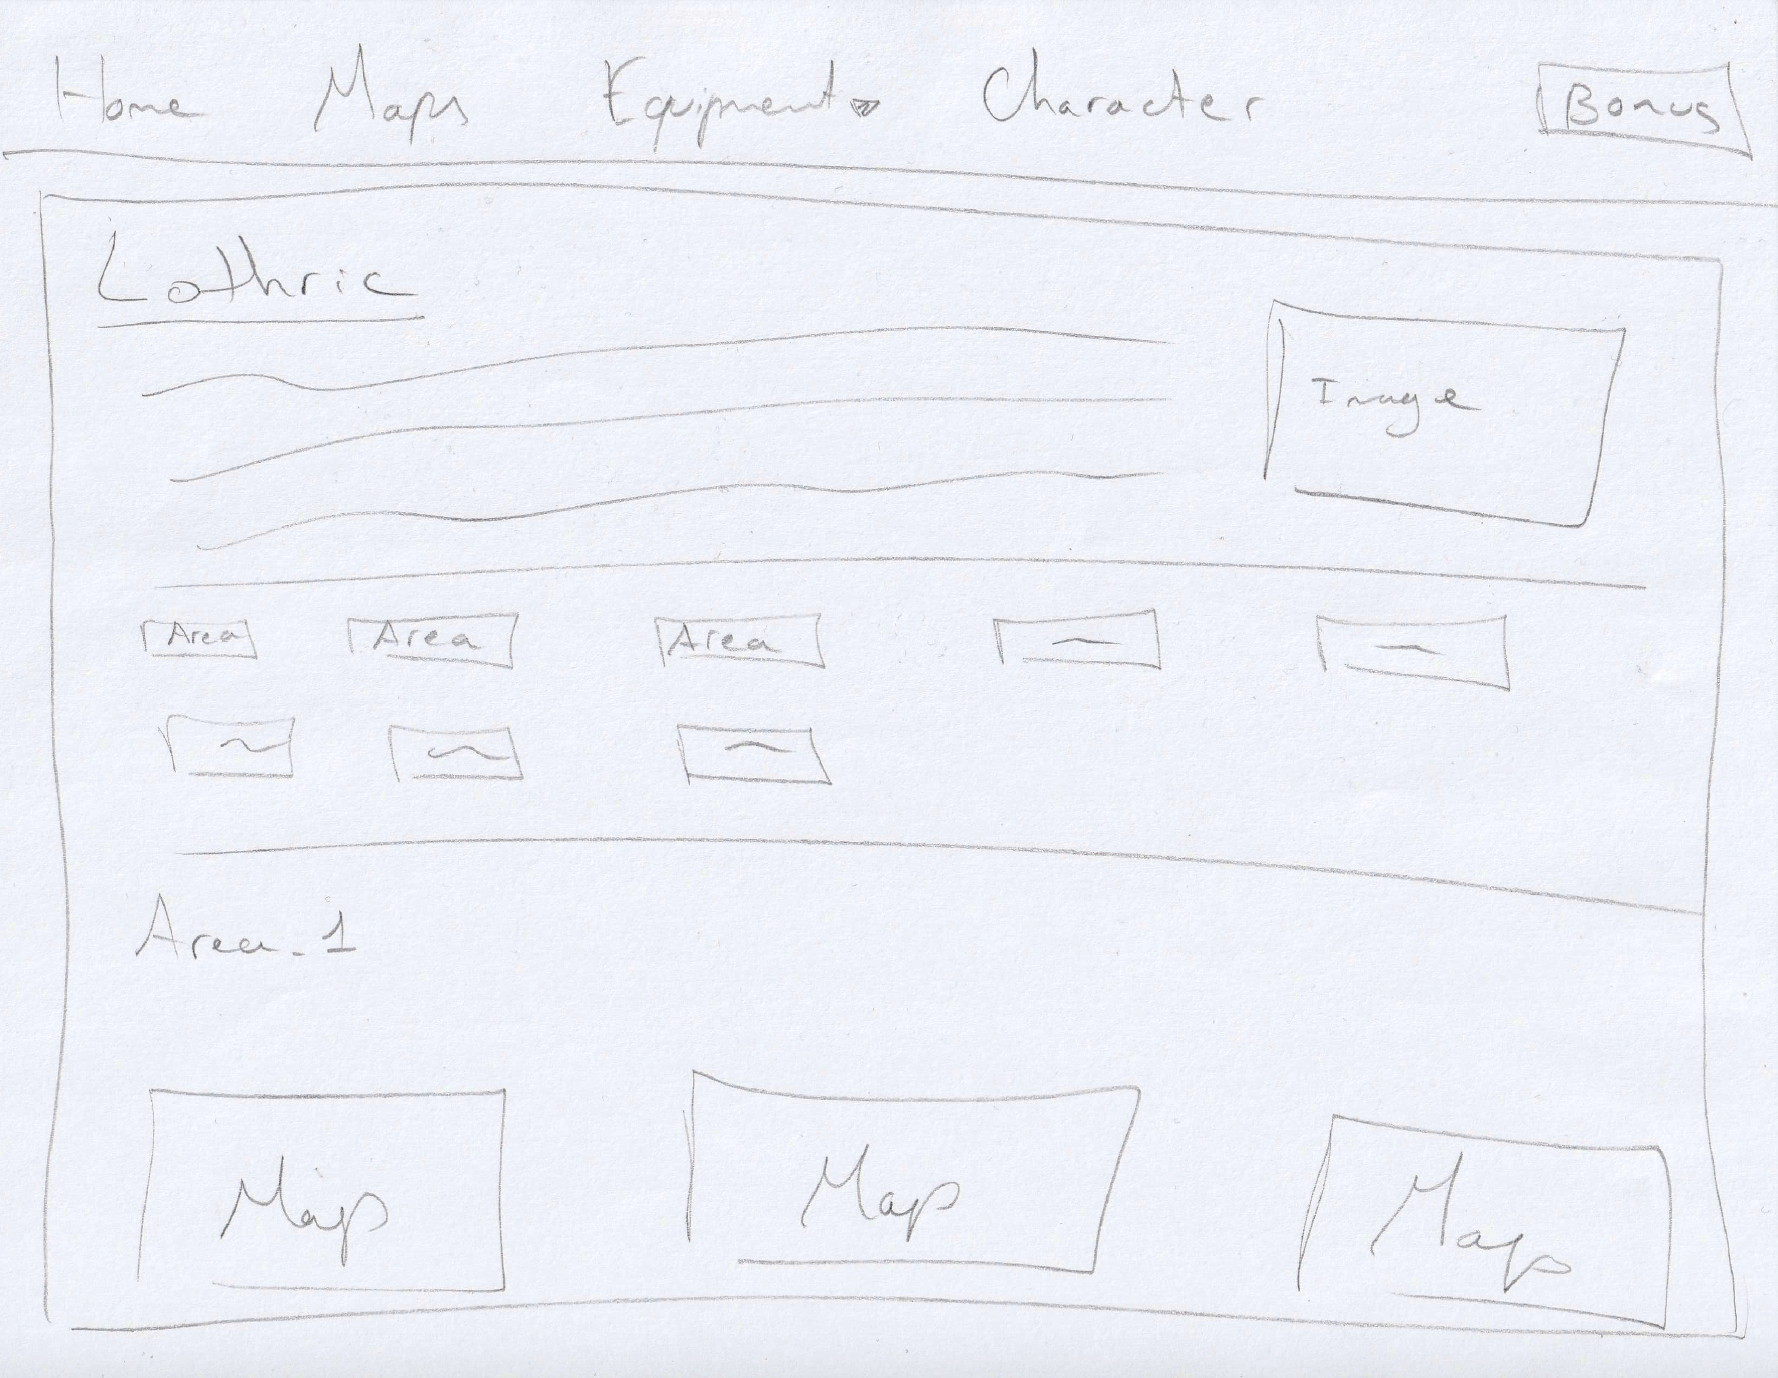 Home Maps Equipment Character Bonus
Lothric
Image
Area Area Area
Area_1
Map Map Map